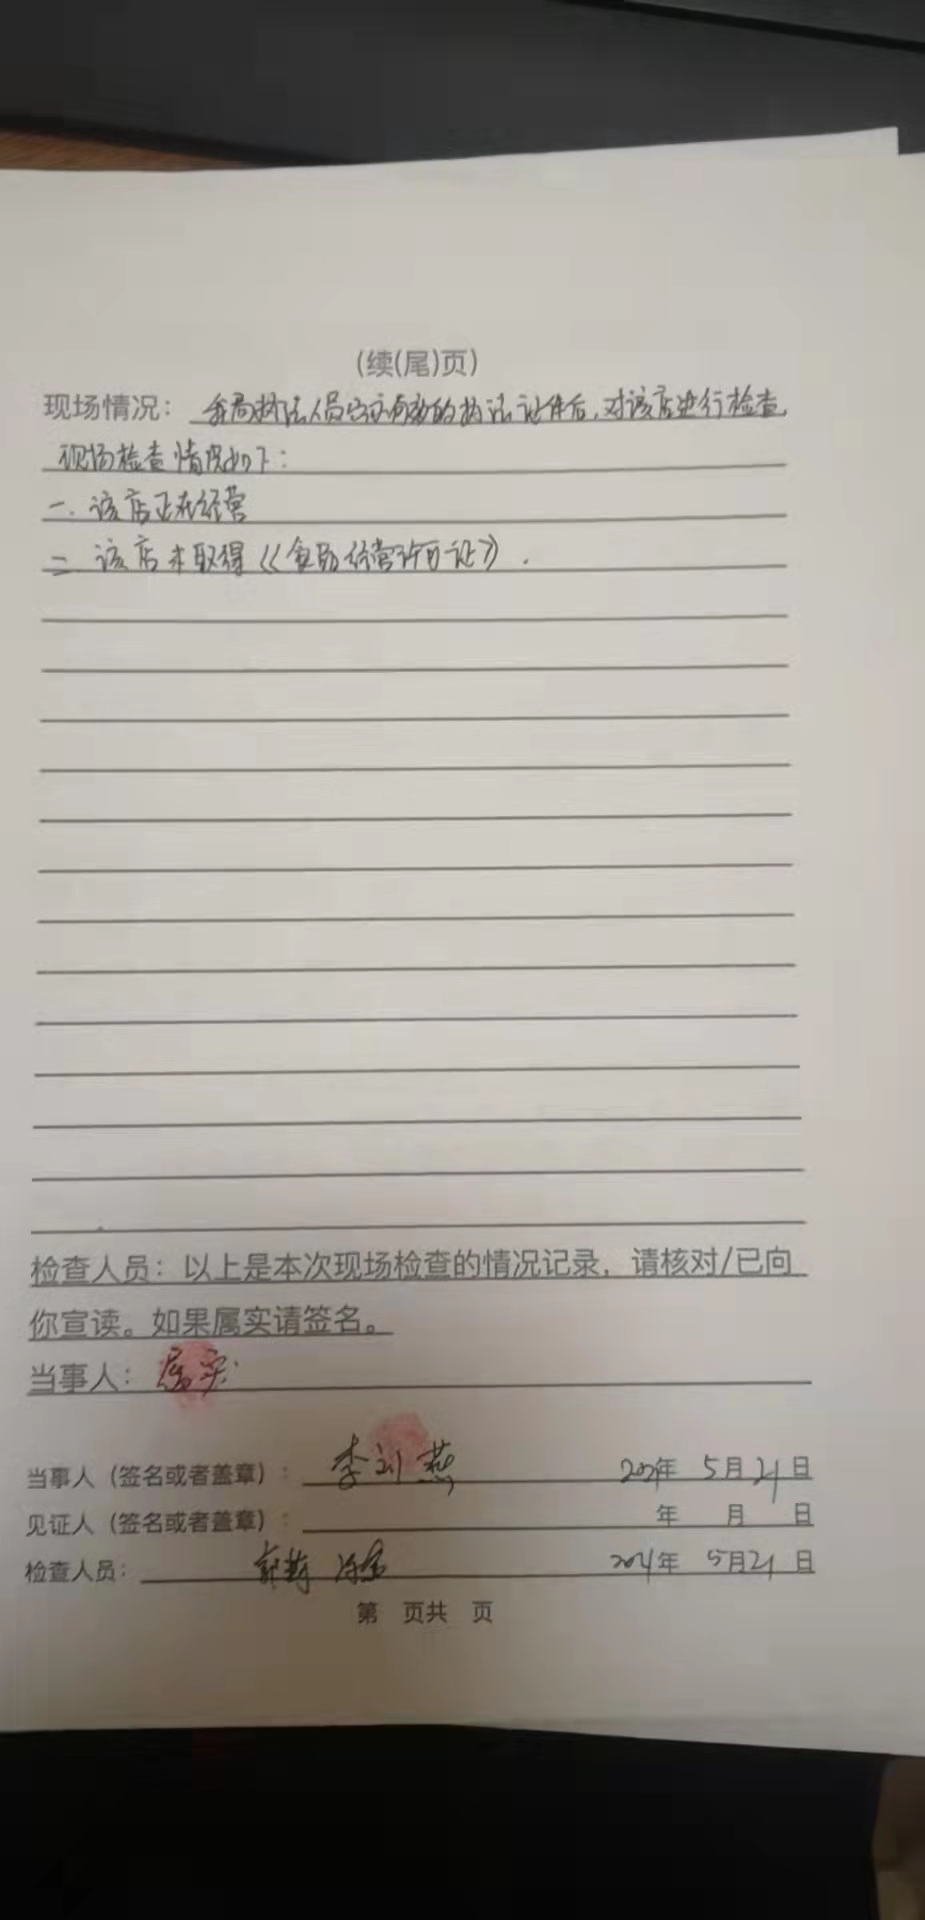 (续(尾)页)
现场情况：我局执法人员出示有效的执法证件后，对该店进行检查，
现场检查情况如下：
一、该店正在经营
二、该店未取得《食品经营许可证》．
检查人员：以上是本次现场检查的情况记录，请核对/已向
你宣读。如果属实请签名。
当事人：属实．
当事人（签名或者盖章）：李刘燕 年 5月21日
见证人（签名或者盖章）： 年 月 日
检查人员： 年 5月21日
第 页共 页